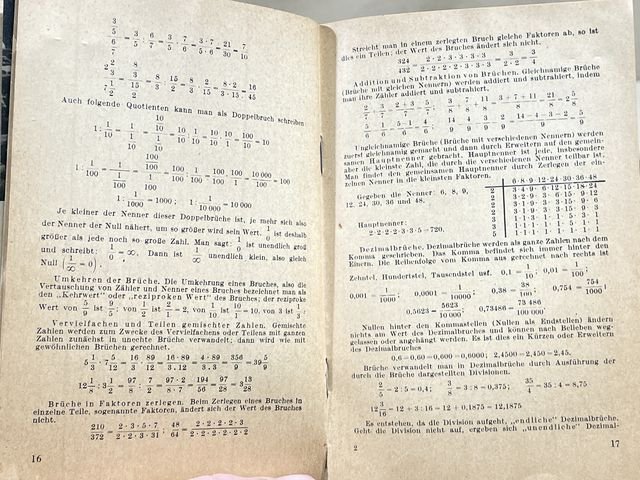 3/5 / 6/7 = 3/5 : 6/7 = 3/5 · 7/6 = 3·7 / 5·6 = 21/30 = 7/10
2 2/3 / 7 1/2 = 8/3 / 15/2 = 8/3 : 15/2 = 8/3 · 2/15 = 8·2 / 3·15 = 16/45
Auch folgende Quotienten kann man als Doppelbruch schreiben:
Je kleiner der Nenner dieser Doppelbrüche ist, je mehr sich also
der Nenner der Null nähert, um so größer wird sein Wert. 1/0 ist deshalb
größer als jede noch so große Zahl. Man sagt: 1/0 ist unendlich groß
und schreibt: 1/0 = ∞. Dann ist 1/∞ unendlich klein, also gleich
Null (1/∞ = 0).
Umkehren der Brüche. Die Umkehrung eines Bruches, also die
Vertauschung von Zähler und Nenner eines Bruches bezeichnet man als
den „Kehrwert" oder „reziproken Wert" des Bruches; der reziproke
Wert von 5/9 ist 9/5; von 1/2 ist 2/1 = 2, von 1/10 ist 10/1 = 10, von 3 ist 1/3
Vervielfachen und Teilen gemischter Zahlen. Gemischte
Zahlen werden zum Zwecke des Vervielfachens oder Teilens mit ganzen
Zahlen zunächst in unechte Brüche verwandelt; dann wird wie mit
gewöhnlichen Brüchen gerechnet.
5 1/3 · 7 5/12 = 16/3 · 89/12 = 16·89 / 3·12 = 4·89 / 3·3 = 356/9 = 39 5/9
12 1/8 : 3 1/2 = 97/8 : 7/2 = 97/8 · 2/7 = 97·2 / 8·7 = 194/56 = 97/28 = 3 13/28
Brüche in Faktoren zerlegen. Beim Zerlegen eines Bruches in
einzelne Teile, sogenannte Faktoren, ändert sich der Wert des Bruches
nicht.
210/372 = 2·3·5·7 / 2·2·3·31; 48/64 = 2·2·2·2·3 / 2·2·2·2·2·2
16
Streicht man in einem zerlegten Bruch gleiche Faktoren ab, so ist
dies ein Teilen; der Wert des Bruches ändert sich nicht.
324/432 = 2·2·3·3·3·3 / 2·2·2·2·3·3·3 = 3 / 2·2 = 3/4
Addition und Subtraktion von Brüchen. Gleichnamige Brüche
(Brüche mit gleichen Nennern) werden addiert und subtrahiert, indem
man ihre Zähler addiert und subtrahiert.
Ungleichnamige Brüche (Brüche mit verschiedenen Nennern) werden
zuerst gleichnamig gemacht und dann durch Erweitern auf den gemein-
samen Hauptnenner gebracht. Hauptnenner ist jede, insbesondere
aber die kleinste Zahl, die durch die verschiedenen Nenner teilbar ist.
Man findet den gemeinsamen Hauptnenner durch Zerlegen der ein-
zelnen Nenner in die kleinsten Faktoren.
Gegeben die Nenner: 6, 8, 9,
12, 24, 30, 36 und 48.
Hauptnenner:
2·2·2·2·3·3·5 = 720.
6·8·9·12·24·30·36·48
2 3·4·9·6·12·15·18·24
2 3·2·9·3·6·15·9·12
2 3·1·9·3·3·15·9·6
2 3·1·9·3·3·15·9·3
3 1·1·3·1·1·5·3·1
3 1·1·1·1·1·5·1·1
5 1·1·1·1·1·1·1·1
Dezimalbrüche. Dezimalbrüche werden als ganze Zahlen nach dem
Komma geschrieben. Das Komma befindet sich immer hinter den
Einern. Die Reihenfolge vom Komma aus gerechnet nach rechts ist
Zehntel, Hundertstel, Tausendstel usf. 0,1 = 1/10; 0,01 = 1/100;
0,001 = 1/1000; 0,0001 = 1/10000; 0,38 = 38/100; 0,754 = 754/1000;
0,5623 = 5623/10000; 0,73486 = 73 486/100 000.
Nullen hinter den Kommastellen (Nullen als Endstellen) ändern
nichts am Wert des Dezimalbruches und können nach Belieben weg-
gelassen oder angehängt werden. Es ist dies ein Kürzen oder Erweitern
des Dezimalbruches
0,6 = 0,60 = 0,600 = 0,6000; 2,4500 = 2,450 = 2,45.
Brüche verwandelt man in Dezimalbrüche durch Ausführung der
durch die Brüche dargestellten Divisionen.
2/5 = 2 : 5 = 0,4; 3/8 = 3 : 8 = 0,375; 35/4 = 35 : 4 = 8,75
12 3/16 = 12 + 3 : 16 = 12 + 0,1875 = 12,1875
Es entstehen, da die Division aufgeht, „endliche" Dezimalbrüche.
Geht die Division nicht auf, ergeben sich „unendliche" Dezimal-
2
17